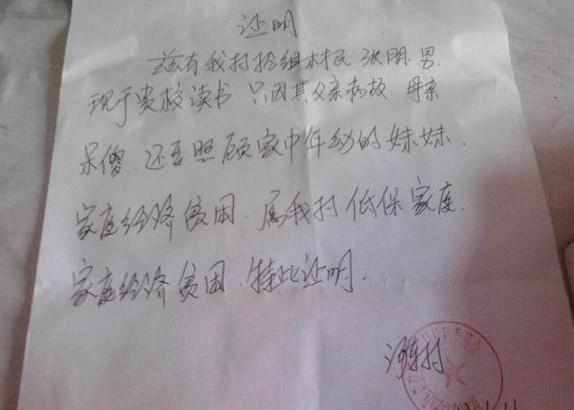 证明
兹有我村拾组村民 张朋 男.
现于贵校读书.只因其父亲病故.母亲
呆傻.还要照顾家中年幼的妹妹.
家庭经济贫困.属我村低保家庭.
家庭经济贫困.特此证明.